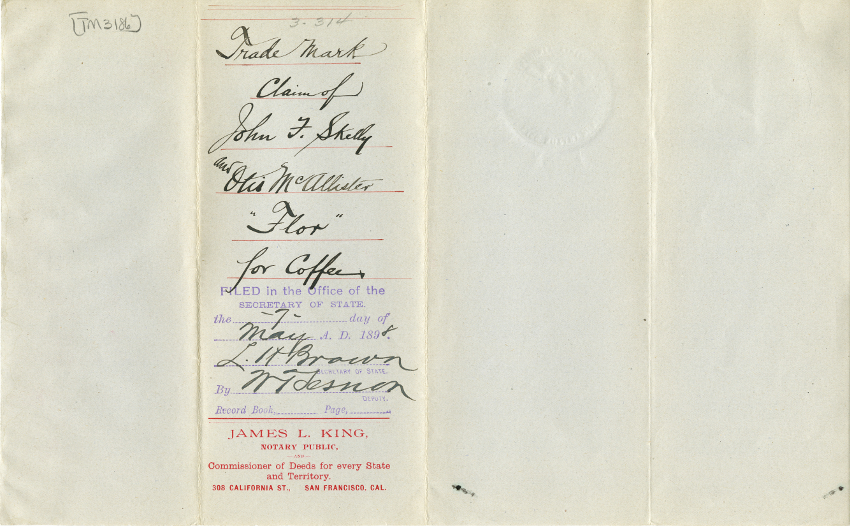 [TM3186]
3-314
Trade Mark
Claim of
John F. Skelly
and Otis McAllister
"Flor"
for Coffee.
FILED in the Office of the
SECRETARY OF STATE,
the -7- day of
May A. D. 1898.
L. H. Brown
SECRETARY OF STATE.
By
DEPUTY.
Record Book, Page,
JAMES L. KING,
NOTARY PUBLIC,
—AND—
Commissioner of Deeds for every State
and Territory.
308 CALIFORNIA ST., SAN FRANCISCO, CAL.